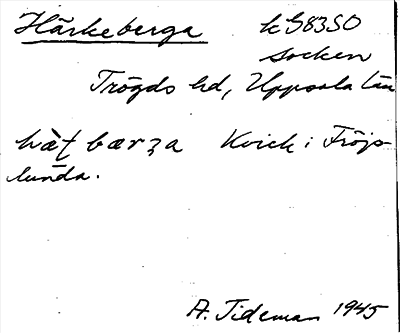 Härkeberga k G83SO
socken
Trögds hd, Uppsala län
hàʈ bærʒa Kvick i Fröjs-
lunda.
A. Tideman 1945